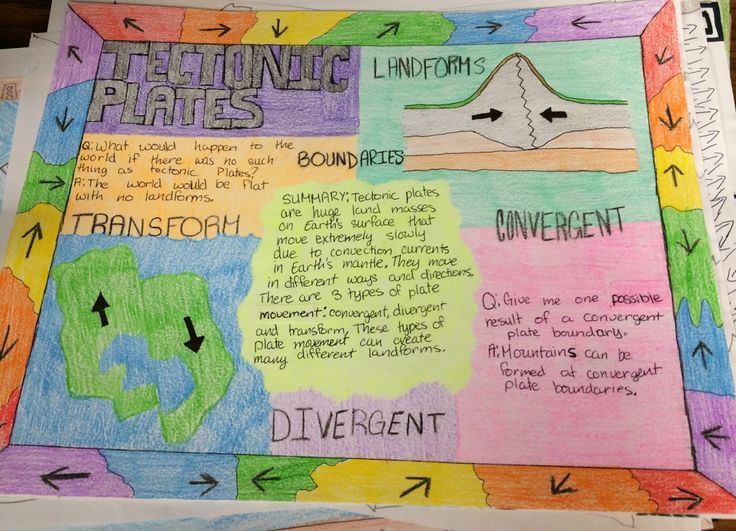 TECTONIC
PLATES
LANDFORMS
Q: What would happen to the
world if there was no such
thing as tectonic Plates?
A: The world would be flat
with no landforms.
BOUNDARIES
TRANSFORM
SUMMARY: Tectonic plates
are huge land masses
on Earth's surface that
move extremely slowly
due to convection currents
in Earth's mantle. They move
in different ways and directions.
There are 3 types of plate
movement: convergent, divergent
and transform. These types of
plate movement can create
many different landforms.
CONVERGENT
Q: Give me one possible
result of a convergent
plate boundary.
A: Mountains can be
formed at convergent
plate boundaries.
DIVERGENT